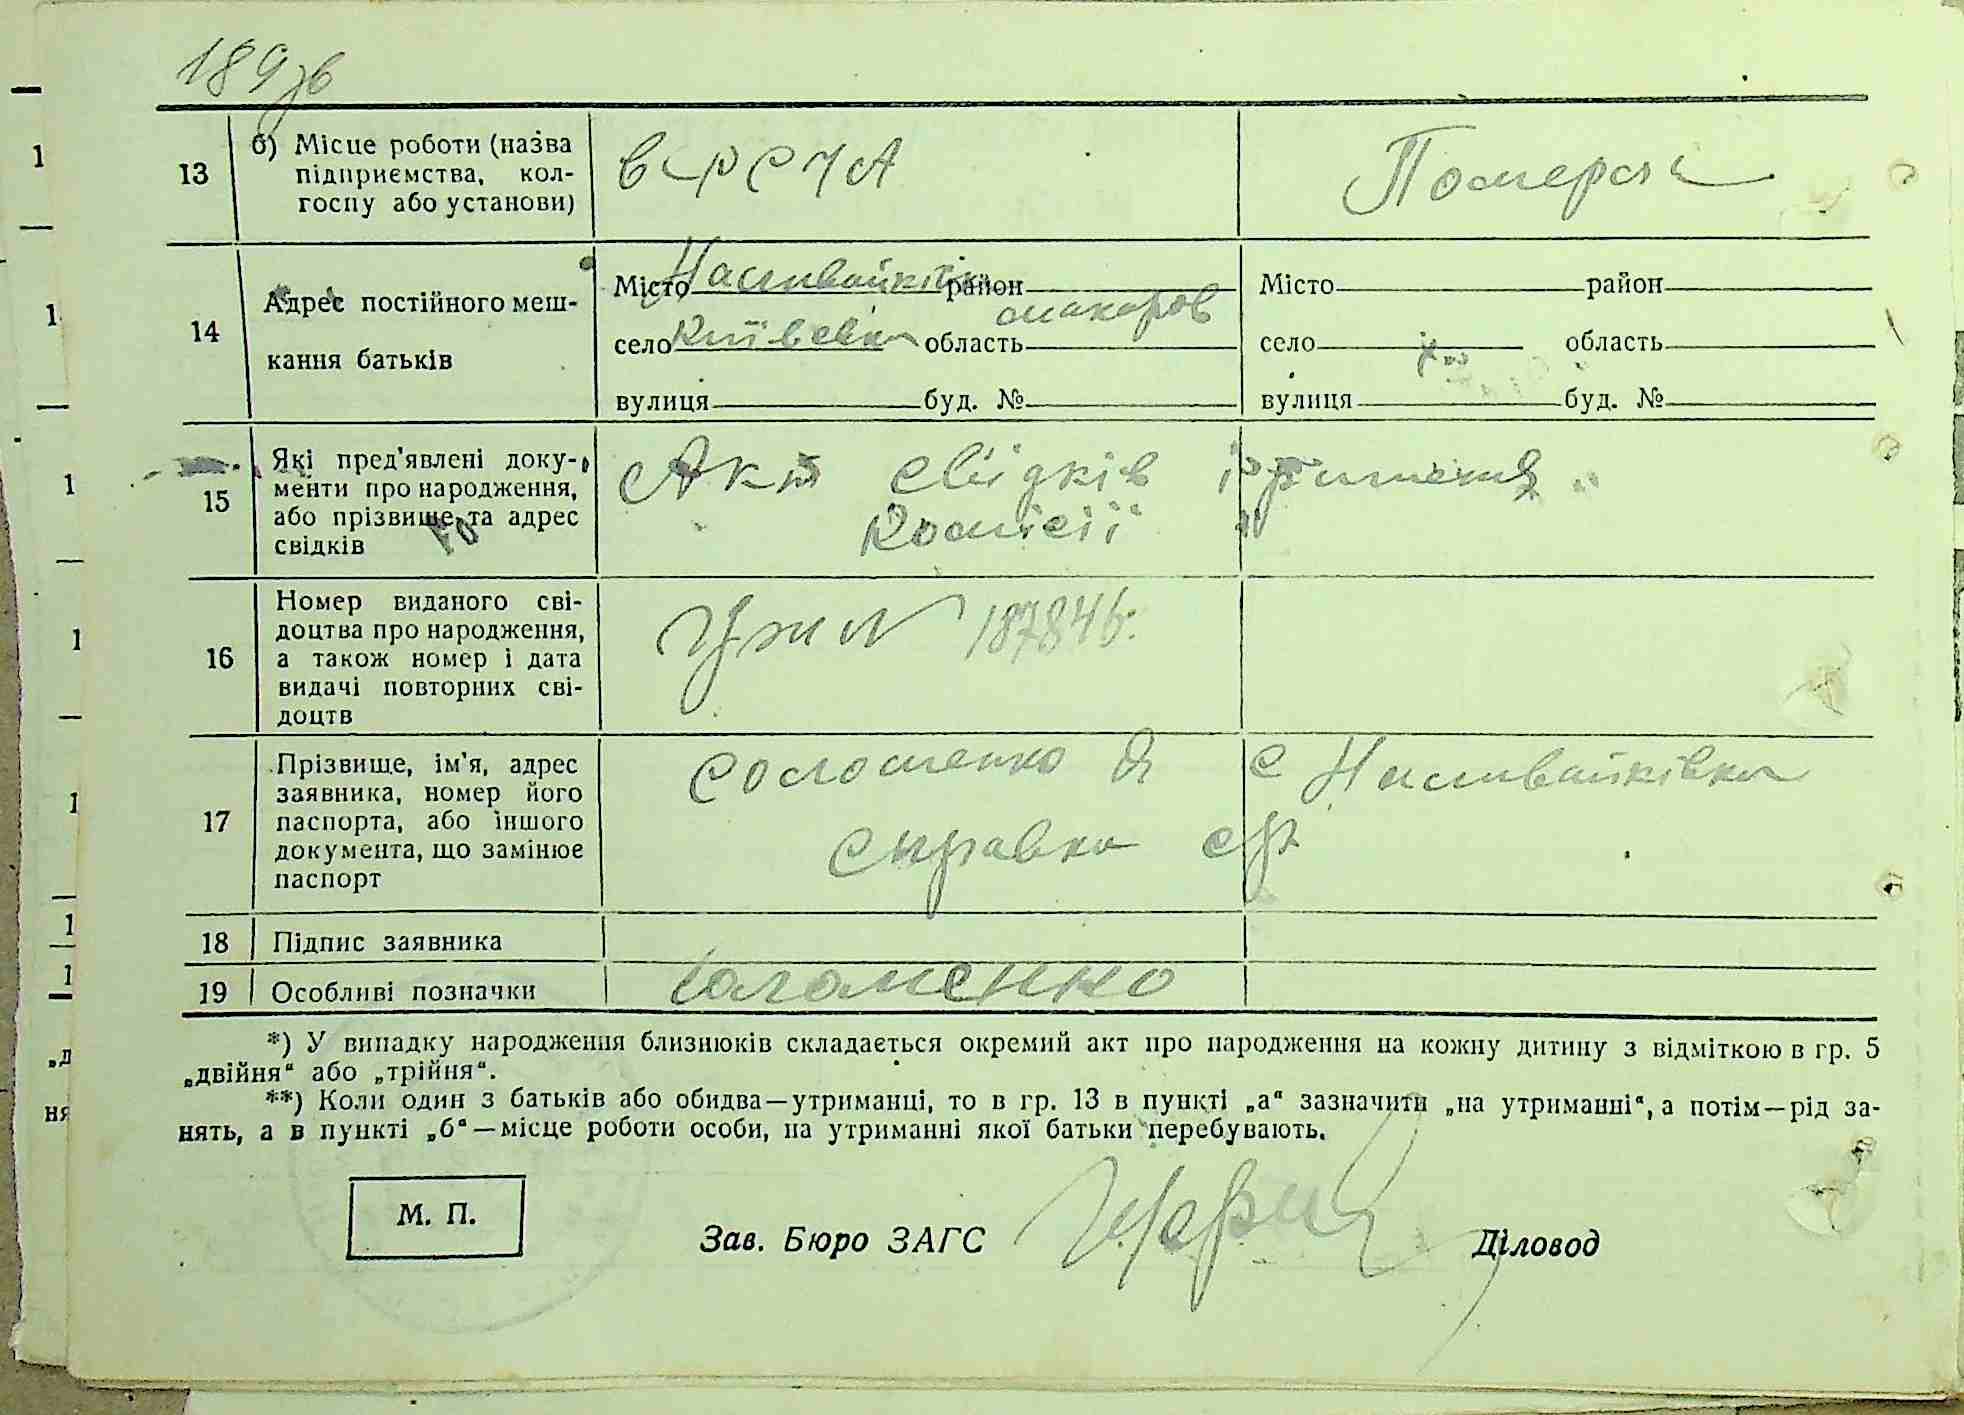 189зв
13
б) Місце роботи (назва
підприємства, кол-
госпу або установи)
в РСЧА
Померла
14
Адрес постійного меш-
кання батьків
Місто Наливайківка район макаров
село Київська область
вулиця буд. №
Місто район
село область
вулиця буд. №
15
Які пред'явлені доку-
менти про народження,
або прізвище та адрес
свідків
Акт свідків і рішення
комісії
16
Номер виданого сві-
доцтва про народження,
а також номер і дата
видачі повторних сві-
доцтв
№ 187846
17
Прізвище, ім'я, адрес
заявника, номер його
паспорта, або іншого
документа, що замінює
паспорт
Соломенко Я с Наливайківка
справка с/р
18 Підпис заявника
19 Особливі позначки
Соломенко
*) У випадку народження близнюків складається окремий акт про народження на кожну дитину з відміткою в гр. 5
„двійня“ або „трійня“.
**) Коли один з батьків або обидва—утриманці, то в гр. 13 в пункті „а“ зазначити „на утриманні“, а потім—рід за-
нять, а в пункті „б“—місце роботи особи, на утриманні якої батьки перебувають.
М. П.
Зав. Бюро ЗАГС
Діловод